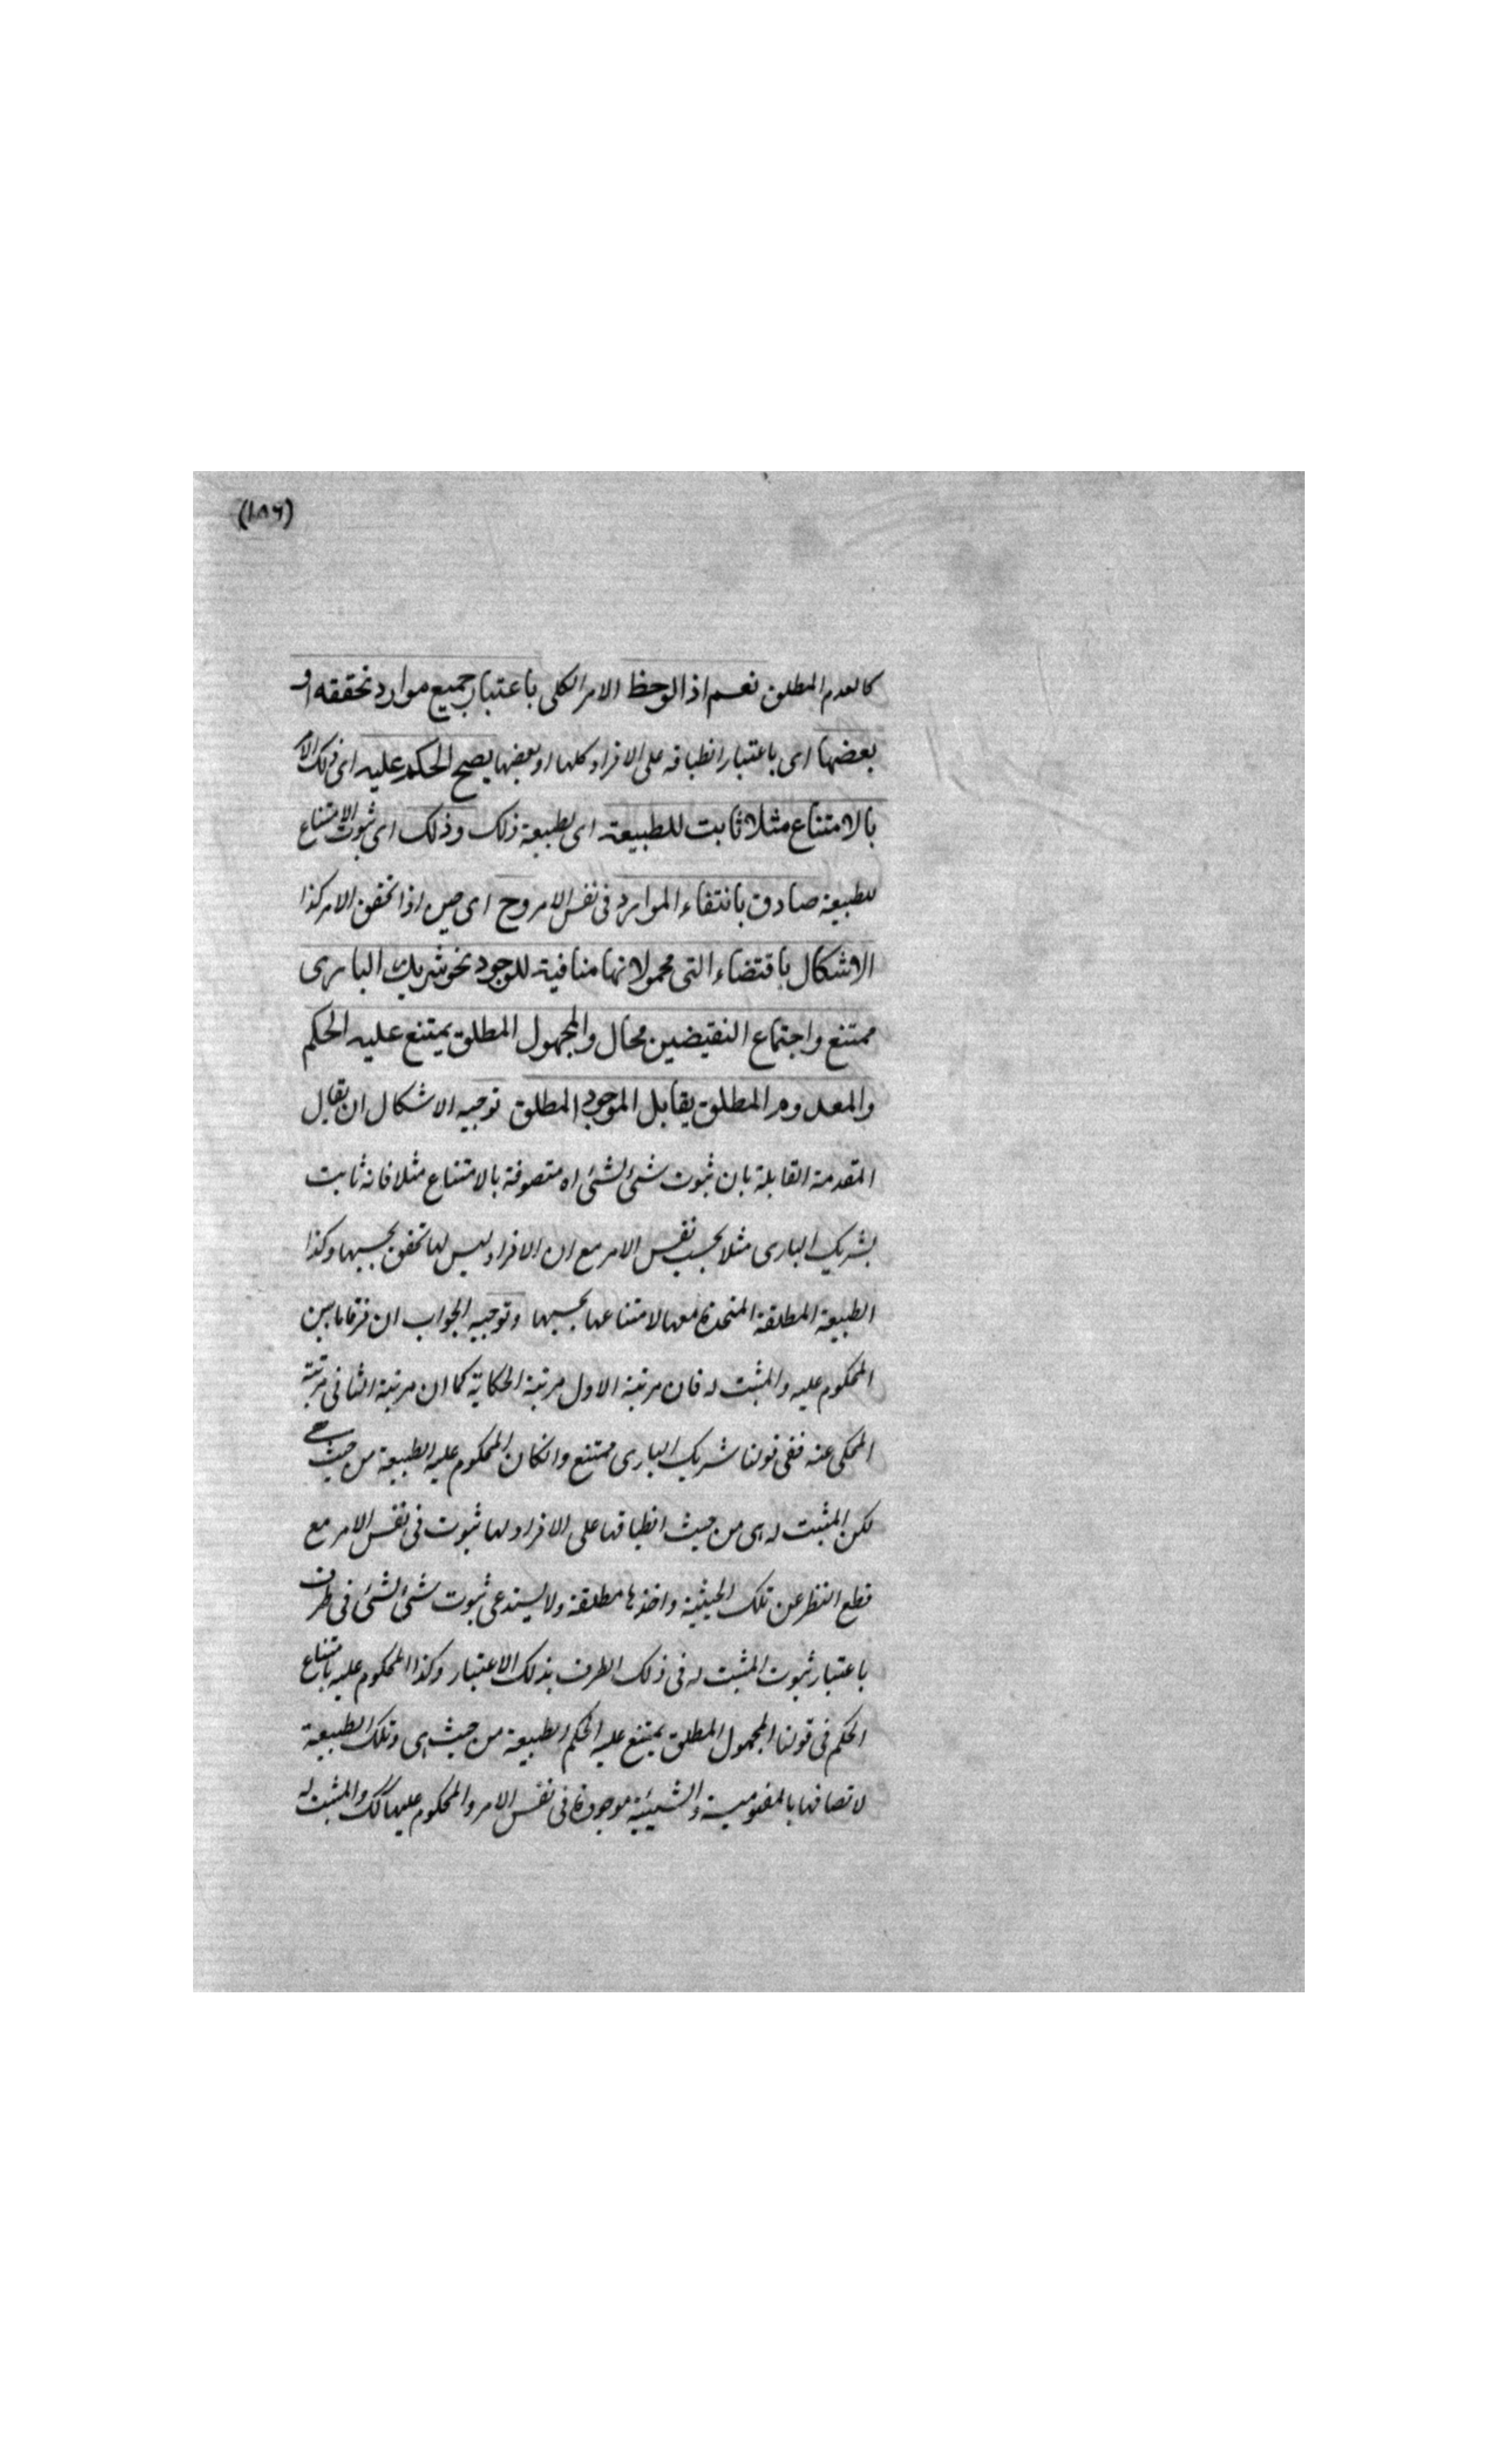 (١٨٦)
كالعدم المطلق نعم اذا لوحظ الامر الكلى باعتبار جميع موارد تحققه او
بعضها اى باعتبار انطباقه على الافراد كلها او بعضها يصح الحكم عليه اى ذلك الا
بالامتناع مثلا ثابت للطبيعة اى لطبيعة ذلك وذلك اى ثبوت الامتناع
للطبيعة صادق بانتفاء الموارد فى نفس الامر وح اى حين اذا تحقق الامر كذا
الاشكال باقتضاء التى محمولاتها منافية للوجود نحو شريك البارى
ممتنع واجتماع النقيضين محال والمجهول المطلق يمتنع عليه الحكم
والمعدوم المطلق يقابل الموجود المطلق توجيه الاشكال ان يقال
المقدمة القابلة بان ثبوت شئ لشئ اه متصوفة بالامتناع مثلا فانه ثابت
لشريك البارى مثلا بحسب نفس الامر مع ان الافراد ليس لها تحقق بحسبها وكذا
الطبيعة المطلقة المتحدة معها لامتناعها بحسبها وتوجيه الجواب ان فرقا ما بين
المحكوم عليه والمثبت له فان مرتبة الاول مرتبة الحكاية كما ان مرتبة الثانى مرتبة
المحكى عنه ففى قولنا شريك البارى ممتنع وانكان المحكوم عليه الطبيعة من حيث هى
لكن المثبت له هى من حيث انطباقها على الافراد لها ثبوت فى نفس الامر مع
قطع النظر عن تلك الحيثية واخذها مطلقة ولا يستدعى ثبوت شئ لشئ فى ظرف
باعتبار ثبوت المثبت له فى ذلك الظرف بذلك الاعتبار وكذا المحكوم عليه بامتناع
الحكم فى قولنا المجهول المطلق يمتنع عليه الحكم الطبيعة من حيث هى وتلك الطبيعة
لاتصافها بالمفهومية والشيئية موجودة فى نفس الامر والمحكوم عليها كك والمثبت له